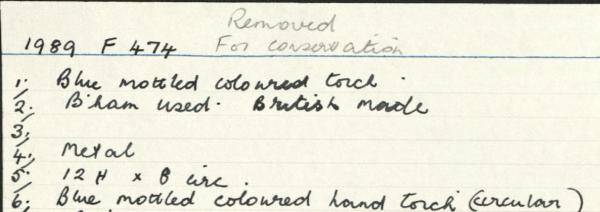 Removed
1989 F 474 For conservation
1. Blue mottled coloured torch.
2. B'ham used. British made
3.
4. Metal
5. 12 H x 8 circ.
6. Blue mottled coloured hand torch (circular)